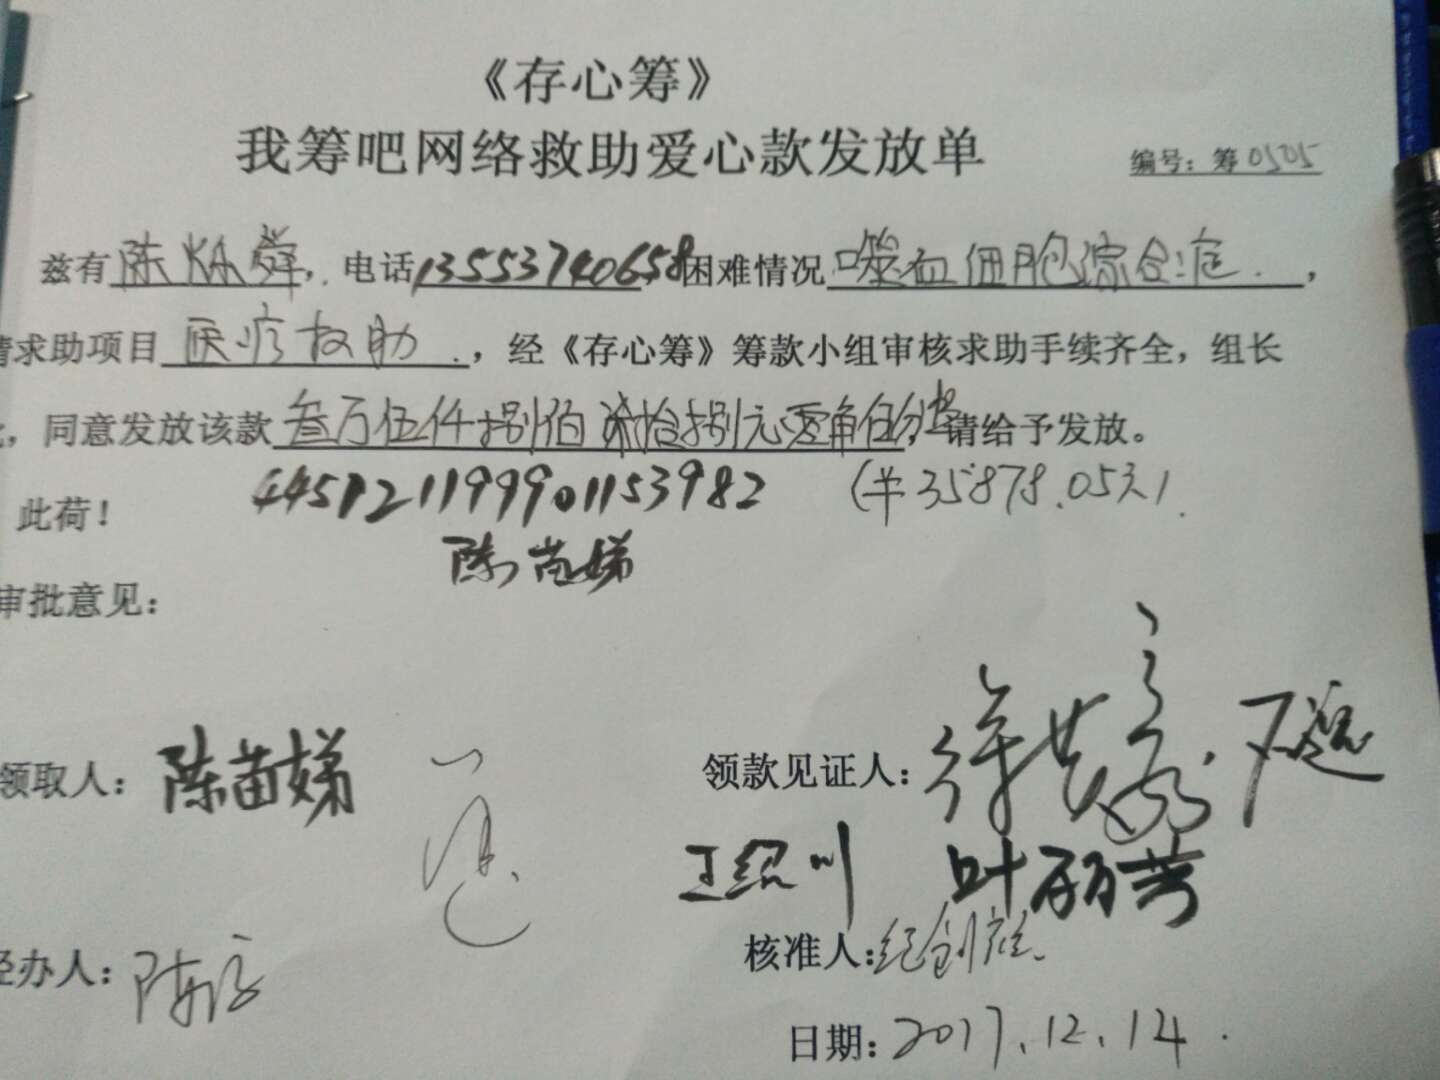 《存心筹》
我筹吧网络救助爱心款发放单
编号：筹0505
兹有陈 舜，电话13553740658困难情况噬血细胞综合症.，
请求助项目医疗救助.，经《存心筹》筹款小组审核求助手续齐全，组长
，同意发放该款叁万伍仟捌佰柒拾捌元零角伍分，请给予发放。
此荷！
445121199901153982 (¥35878.05元).
陈苗娣
审批意见：
领取人：陈苗娣
领款见证人：
王绍川 叶丽芳
经办人：陈
核准人：纪创
日期：2017.12.14.